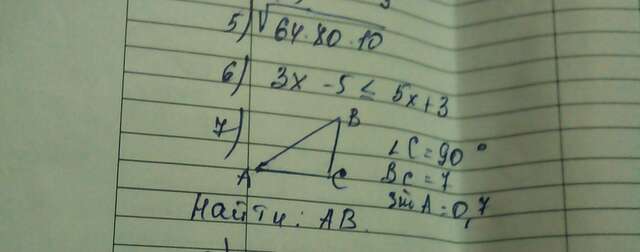 5) √64·80·10
6) 3x - 5 ≤ 5x+3
7)
B
A
C
∠C = 90°
BC = 7
Sin A = 0,7
Найти: AB.